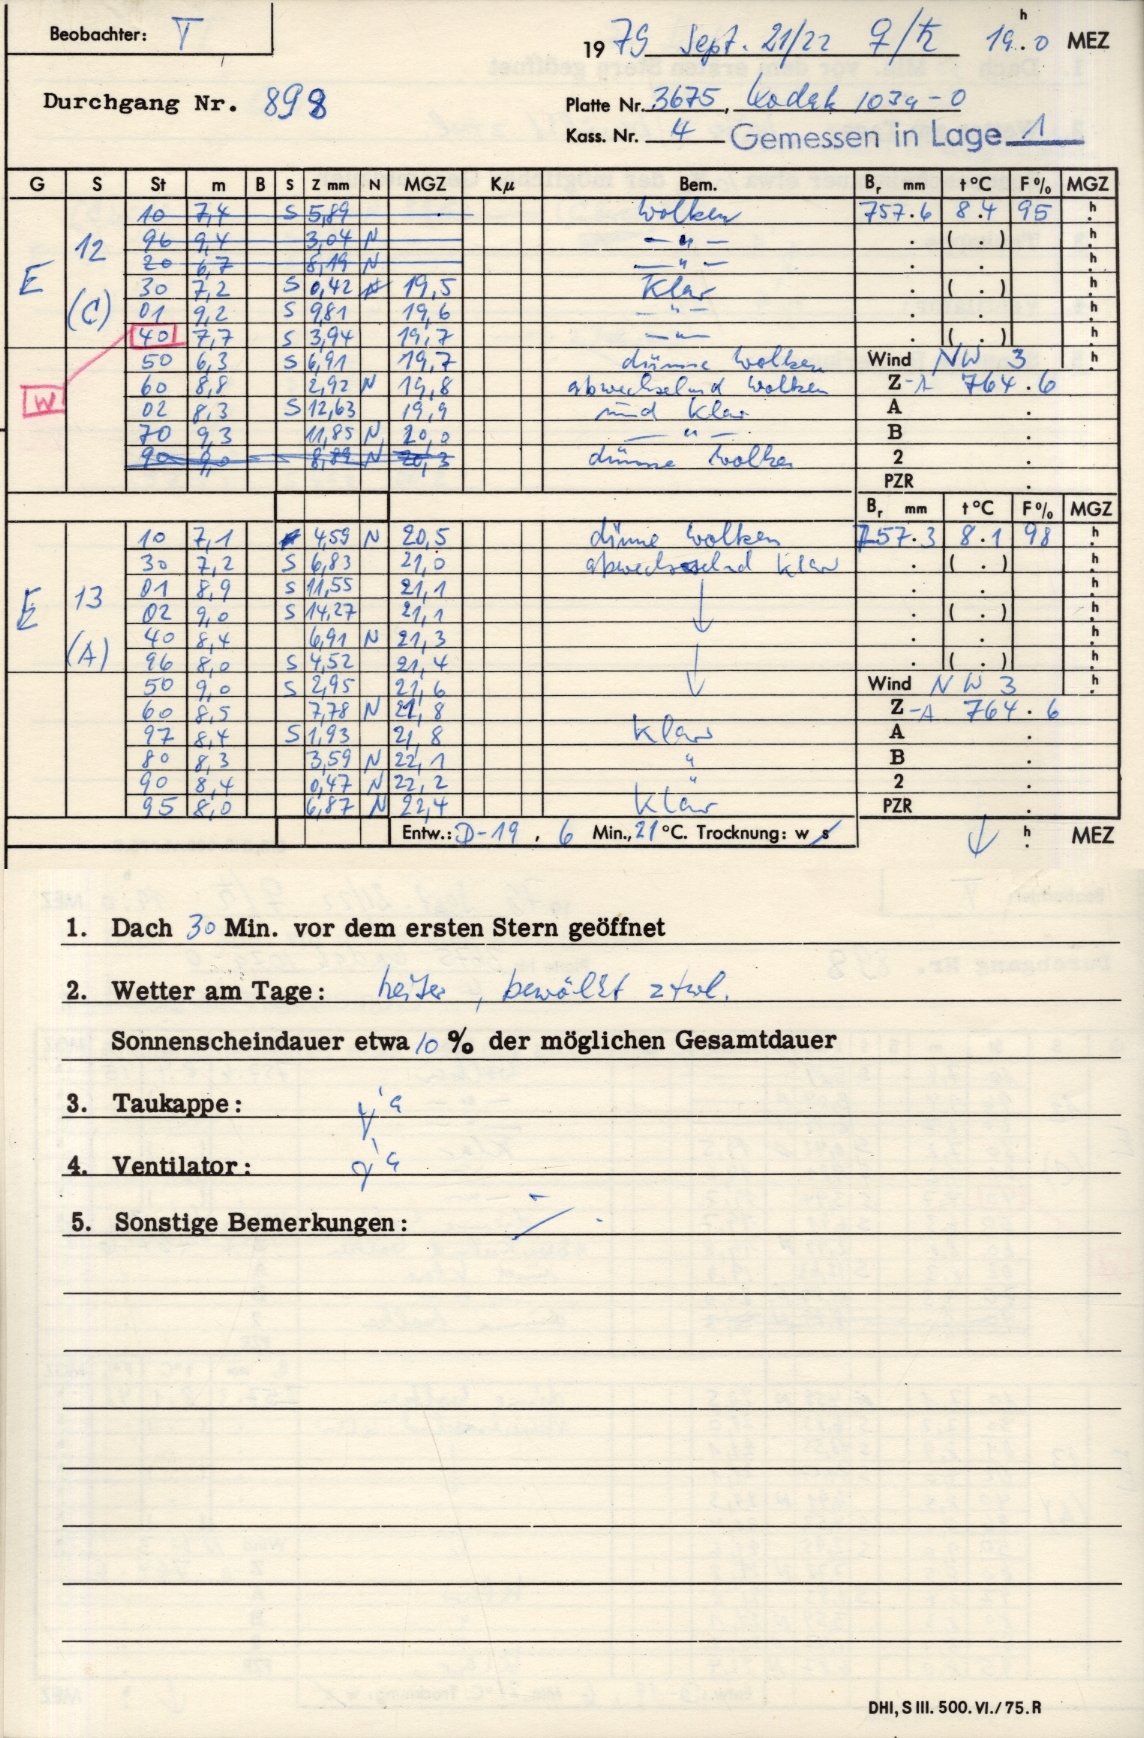 Beobachter: T
1979 Sept. 21/22 ♀/♄ 19.h0 MEZ
Durchgang Nr. 898
Platte Nr. 3675, Kodak 103a-O
Kass. Nr. 4 Gemessen in Lage 1
G S St m B S Z mm N MGZ Kμ Bem. Br mm t°C F% MGZ
10 7,4 S 5,89 Wolken 757.6 8.4 95 h
96 9,4 3,04 N — " — ( . ) h
20 6,7 8,19 N — " — h
E 12 (C) 30 7,2 S 0,42 N 19,5 Klar ( . ) h
01 9,2 S 9,81 19,6 — " — h
40 7,7 S 3,94 19,7 — " — ( . ) h
50 6,3 S 6,91 19,7 dünne Wolken Wind NW 3 h
W 60 8,8 2,92 N 19,8 abwechselnd Wolken Z-A 764.6
02 8,3 S 12,63 19,9 und Klar A .
70 9,3 11,85 N 20,0 — " — B .
90 9,0 8,82 N 20,3 dünne Wolken 2 .
PZR .
Br mm t°C F% MGZ
10 7,1 4,59 N 20,5 dünne Wolken 757.3 8.1 98 h
30 7,2 S 6,83 21,0 abwechselnd Klar ( . ) h
E 13 (A) 01 8,9 S 11,55 21,1 h
02 9,0 S 14,27 21,1 ( . ) h
40 8,4 6,91 N 21,3 h
96 8,0 S 4,52 21,4 ( . ) h
50 9,0 S 2,95 21,6 Wind NW 3 h
60 8,5 7,78 N 21,8 Z-A 764.6
97 8,4 S 1,93 21,8 Klar A .
80 8,3 3,59 N 22,1 " B .
90 8,4 0,47 N 22,2 " 2 .
95 8,0 6,87 N 22,4 Klar PZR .
Entw.: D-19, 6 Min., 21°C. Trocknung: w s h MEZ
1. Dach 30 Min. vor dem ersten Stern geöffnet
2. Wetter am Tage: heiter, bewölkt ztwl.
Sonnenscheindauer etwa 10 % der möglichen Gesamtdauer
3. Taukappe: ja
4. Ventilator: ja
5. Sonstige Bemerkungen: ∕.
DHI, S III. 500. VI./75. R